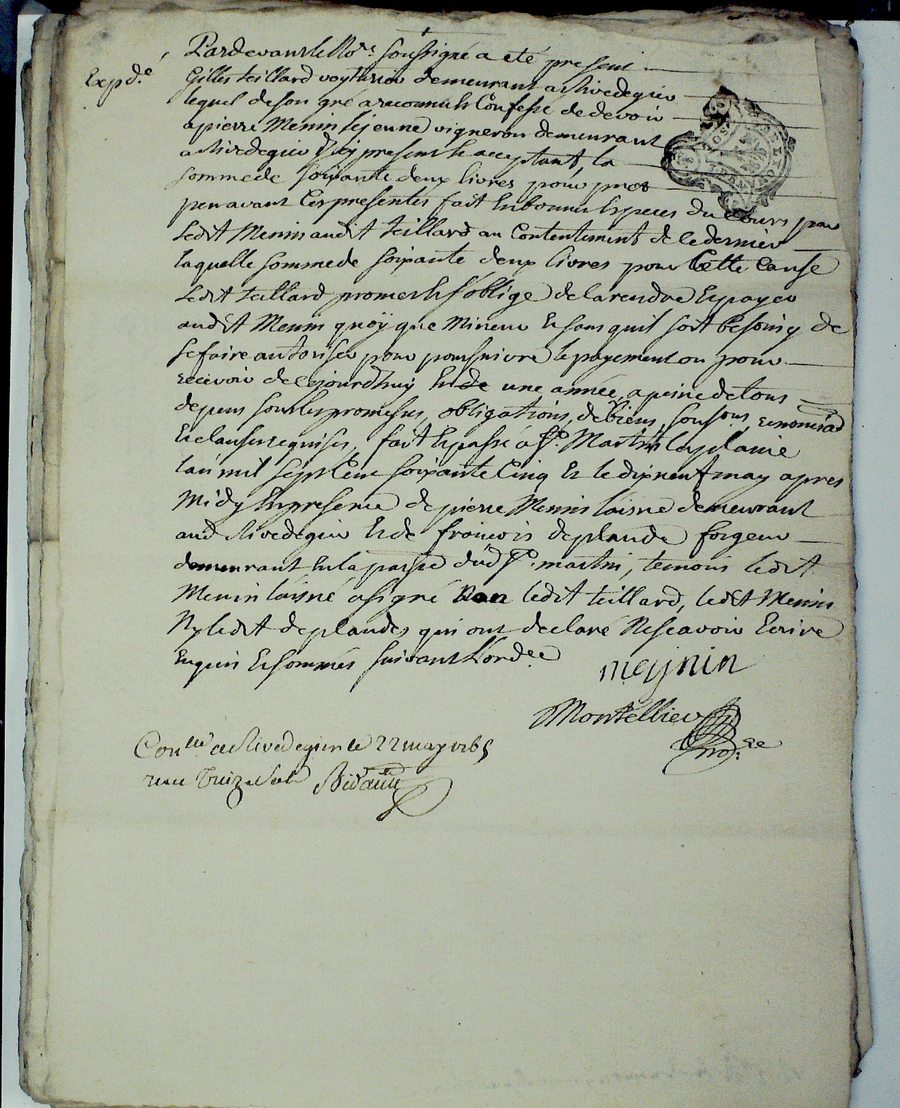 Expd.e
Pardevant le No.re soussigné a eté present
Gilles teillard voyturier demeurant a Rivedegier
lequel de son gré a reconnu et Confessé de devoir
a pierre Menin le jeune vigneron demeurant
a Rivedegier icy present et acceptant, la
somme de soixante deux livres pour prest
peu avant Ces presentes fait en bonnes especes du Cours par
ledit Menin audit teillard au Contentement de ce dernier
laquelle somme de soixante deux livres pour Cette Cause
ledit teillard promet et s'oblige de la rendre et payer
audit Menin quoÿ que Mineur et sans quil soit besoing de
se faire autoriser pour poursuivre le payement ou pour
recevoir de cejourdhuy en une année, a peine de tous
depens sous les promesses, obligations, de biens, soumissons, renonciaõ
et clauses requises, fait et passé a St. Martin la plaine
lan mil sept Cent soixante Cinq et le dixneuf may apres
Midy en presence de pierre Menin laisné demeurant
audit Rivedegier et de francois deplande forgeur
demeurant en la parsse dud St. martin, temoins ledit
Menin laisné a signé Non ledit teillard, ledit Menin
Ny ledit deplandes qui ont declaré Ne scavoir Ecrire
Enquis et sommés suivant l'ordce
meynin
Montellier
no.re
Con.llé a Rivedegier le 22 may 1765
reçu treize sols